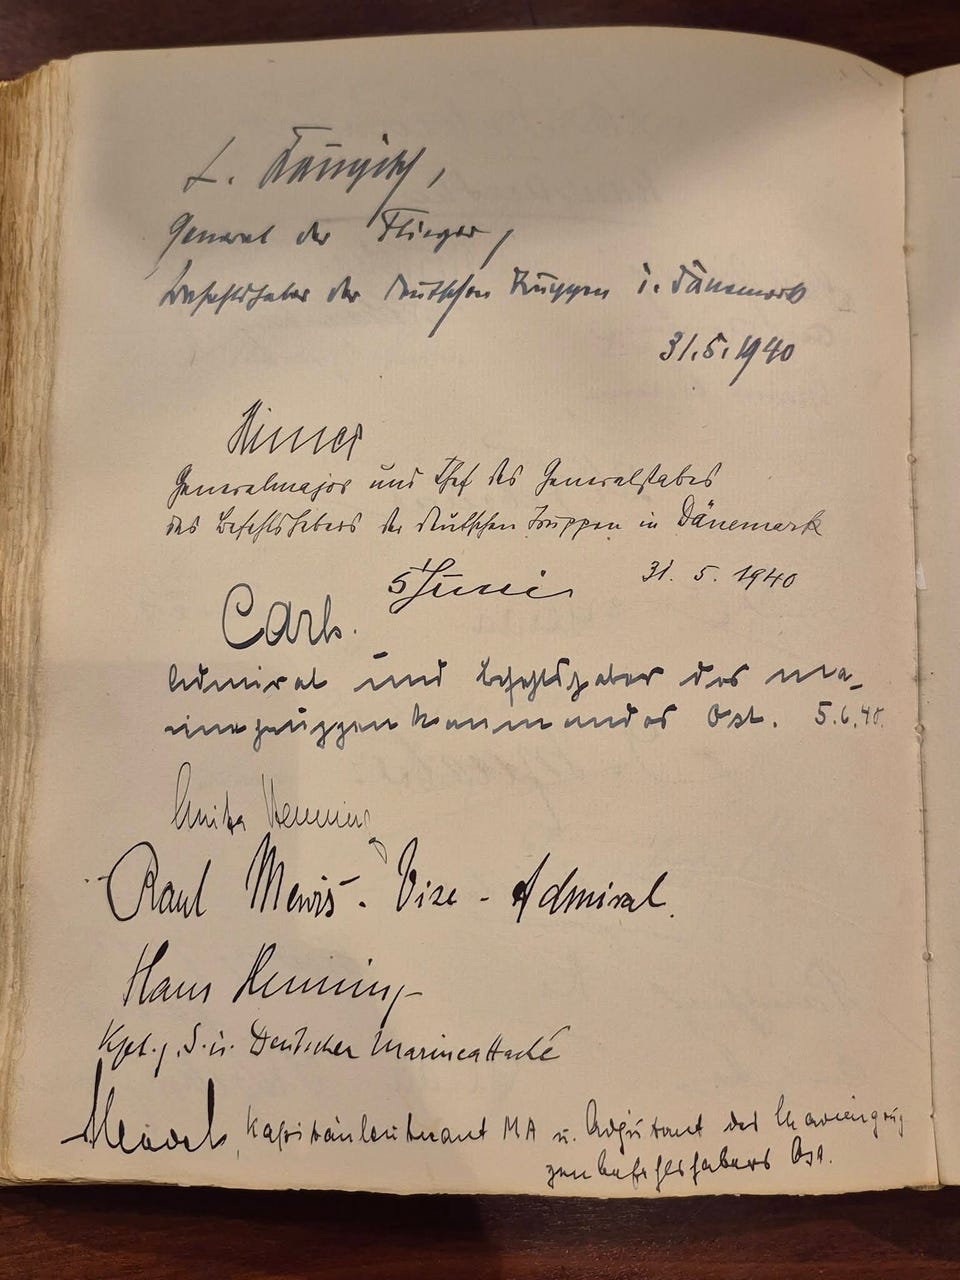 L. Kaupisch,
General der Flieger,
Befehlshaber der deutschen Truppen i. Dänemark
31.5.1940
Himer
Generalmajor und Chef des Generalstabes
des Befehlshabers der deutschen Truppen in Dänemark
31. 5. 1940
5 Juni
Carls.
Admiral und Befehlshaber des Ma-
rinegruppenkommandos Ost. 5.6.40.
Anita Henning
Raul Mewis - Vize-Admiral.
Hans Henning
Kpt. z. S. u. Deutscher Marineattaché
Kapitänleutnant MA u. Adjutant des Marinegrup
penbefehlshabers Ost.